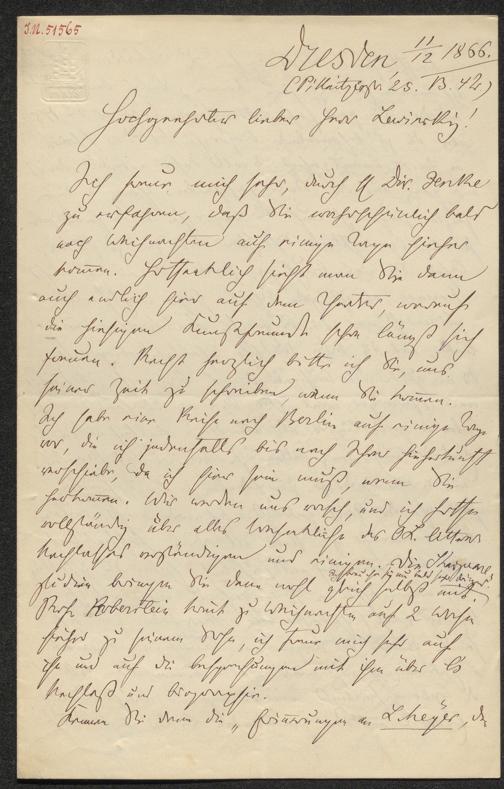 J.N. 51565
Dresden 11/12 1866.
(Pillnitzerstr. 25. B. 42)
Hochgeehrter lieber Herr Lewinsky!
Ich freue mich sehr, durch H Dir. Jenke
zu erfahren, daß Sie wahrscheinlich bald
nach Weihnachten auf einige Tage hierher
kommen. Hoffentlich sieht man Sie dann
auch endlich hier auf dem Theater, worauf
die hiesigen Kunstfreunde schon längst sich
freuen. Recht herzlich bitte ich Sie, uns
seiner Zeit zu schreiben, wann Sie kommen.
Ich habe eine Reise nach Berlin auf einige Tage
vor, die ich jedenfalls bis nach Ihrer Hierherkunft
verschiebe, da ich hier sein muß, wenn Sie
herkommen. Wir werden uns rasch, und ich hoffe
vollständig über alles Wesentliche des
Nachlasses verständigen und einigen. Die
studien bringen Sie dann wohl gleich selbst mit.
Prof. Koberstein kommt zu Weihnachten auf 2 Wochen
hierher zu seinem Sohn, ich freue mich sehr auf
ihn und auf die Besprechungen mit ihm über
Nachlaß und Biographie.
Kennen Sie denn die „Erinnerungen an